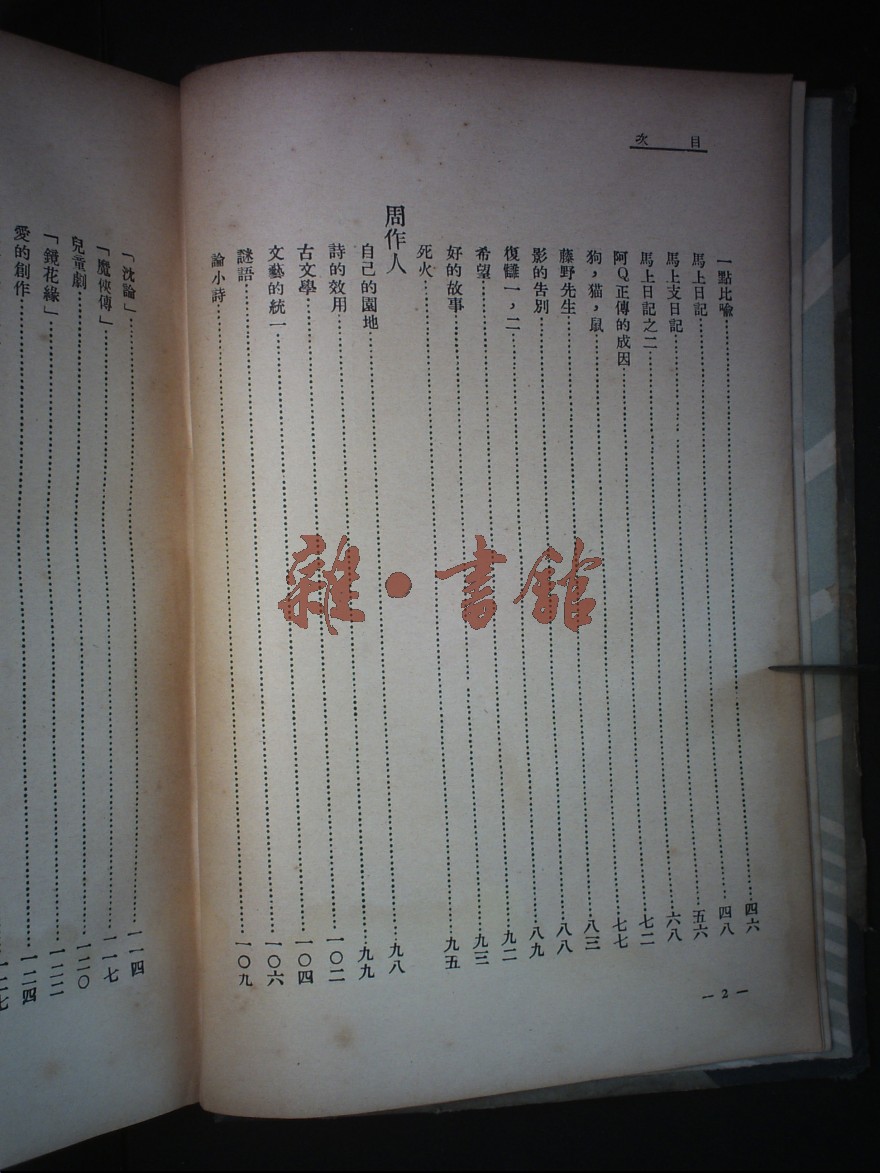 目次
一點比喻……四六
馬上日記……四八
馬上支日記……五六
馬上日記之二……六八
阿Q正傳的成因……七二
狗，貓，鼠……七七
藤野先生……八三
影的告別……八八
復讎一，二……八九
希望……九二
好的故事……九三
死火……九五
周作人
自己的園地……九八
詩的效用……九九
古文學……一〇二
文藝的統一……一〇四
謎語……一〇六
論小詩……一〇九
— 2 —
「沈論」……一一四
「魔俠傳」……一一七
兒童劇……一二〇
「鏡花緣」……一二二
愛的創作……一二四
雜·書館